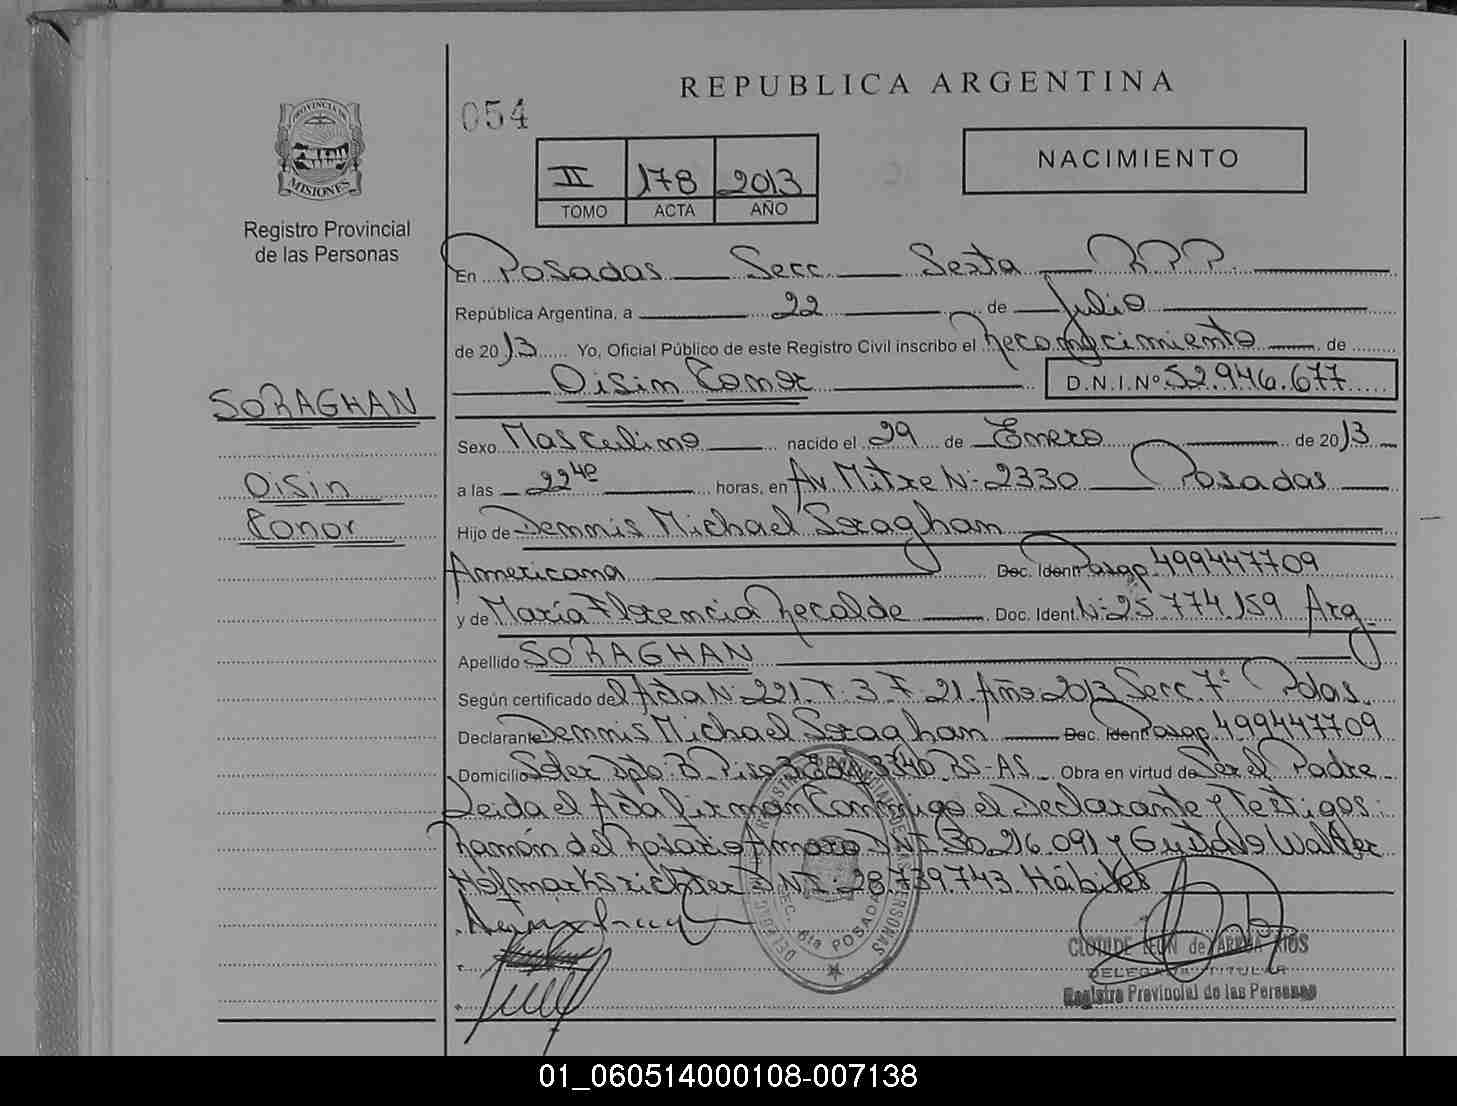 REPUBLICA ARGENTINA
054
PROVINCIA DE
MISIONES
Registro Provincial
de las Personas
NACIMIENTO
II 178 2013
TOMO ACTA AÑO
En Posadas Secc. Sexta R.P.P.
República Argentina, a 22 de Julio
de 2013 Yo, Oficial Público de este Registro Civil inscribo el Reconocimiento de
Oisin Conor D.N.I.Nº 52.946.677
SORAGHAN
Oisin
Conor
Sexo Masculino nacido el 29 de Enero de 2013
a las 22 40 horas, en Av. Mitre Nº 2330 Posadas
Hijo de Dennis Michael Soraghan
Americana Doc. Ident Pasap. 499447709
y de María Florencia Recalde Doc. Ident. Nº 25.774.159 Arg.
Apellido SORAGHAN
Según certificado del Acta Nº 221 T. 3 F. 21 Año 2013 Secc. 7ª Pdas.
Declarante Dennis Michael Soraghan Doc. Ident Pasap. 499447709
Domicilio Soler Dpto B Piso 3340 BS-AS Obra en virtud de Ser el Padre
Leida el Acta firman Conmigo el Declarante y Testigos:
Ramón del Rosario Amaro DNI 30.216.091 y Gustavo Walter
Hofmarksrichter DNI. 28.739.743. Hábiles
SEC. 6ta POSADAS
CLOTILDE LEON de ARRUA RIOS
DELEGADA TITULAR
Registro Provincial de las Personas
01_060514000108-007138